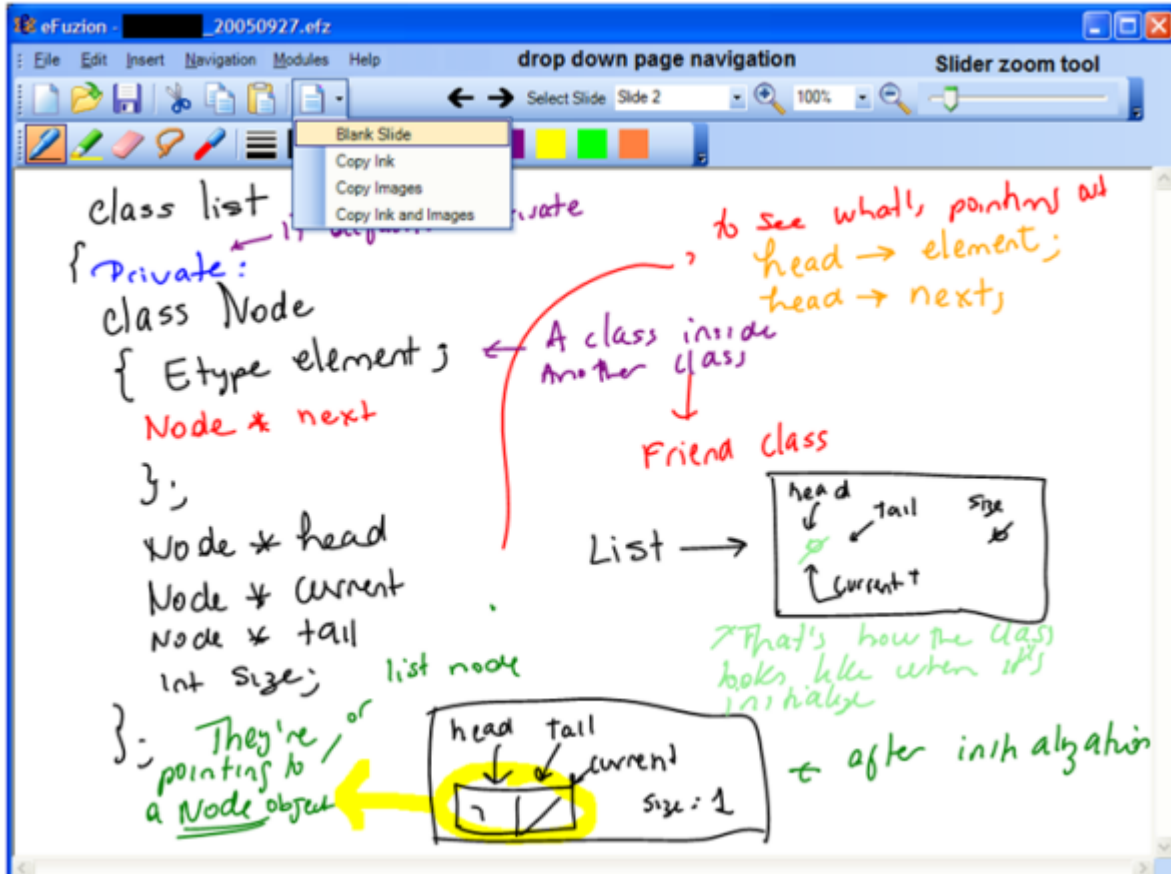 eFuzion - _20050927.efz
File Edit Insert Navigation Modules Help
drop down page navigation
Slider zoom tool
Select Slide Slide 2
100%
Blank Slide
Copy Ink
Copy Images
Copy Ink and Images
class list
{ Private:
class Node
{ Etype element;
Node * next
};
Node * head
Node * current
Node * tail
int size;
};
to see what's pointing at
head → element;
head → next;
← A class inside
Another class
Friend class
List →
head
tail
size
current
That's how the class
looks like when it's
initialize
list node
or
They're
pointing to
a Node object
head tail
current
size: 1
← after initialization